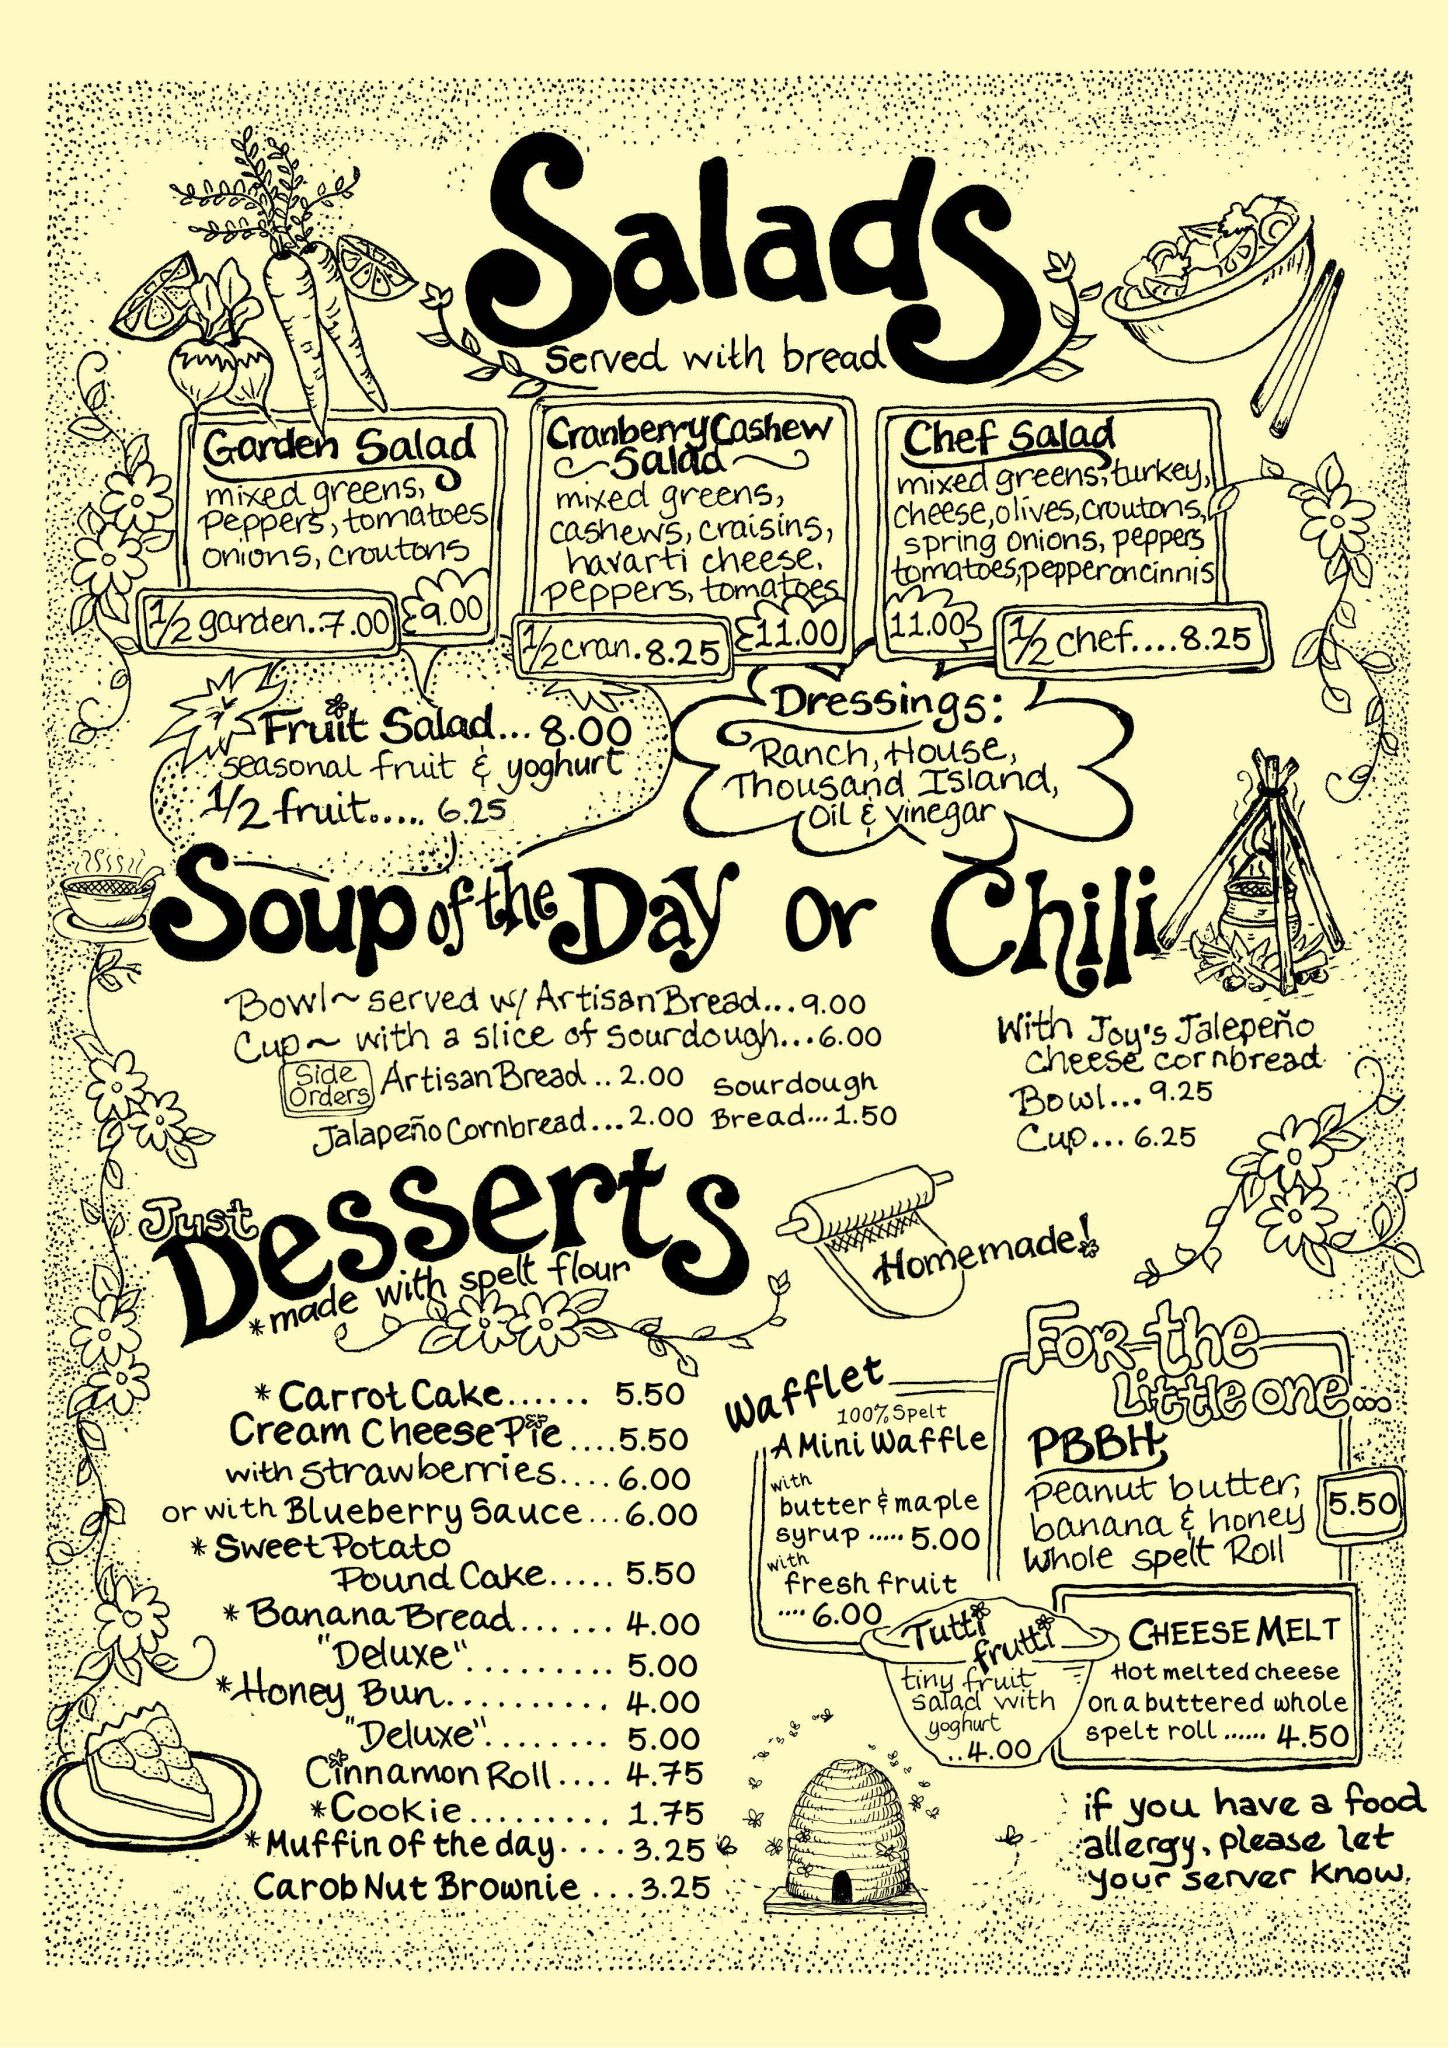 Salads
Served with bread
Garden Salad
mixed greens,
peppers, tomatoes
onions, croutons
1/2 garden..7.00
9.00
Cranberry Cashew
Salad
mixed greens,
cashews, craisins,
havarti cheese,
peppers, tomatoes
1/2 cran.8.25
11.00
Chef Salad
mixed greens, turkey,
cheese, olives, croutons,
spring onions, peppers
tomatoes, pepperoncinnis
11.00
1/2 chef....8.25
Fruit Salad...8.00
seasonal fruit & yoghurt
1/2 fruit..... 6.25
Dressings:
Ranch, House,
Thousand Island,
Oil & vinegar
Soup of the Day or Chili
Bowl~ served w/ Artisan Bread...9.00
Cup~ with a slice of sourdough...6.00
Side
Orders
Artisan Bread..2.00
Jalapeño Cornbread...2.00
Sourdough
Bread...1.50
With Joy's Jalepeño
cheese cornbread
Bowl...9.25
Cup...6.25
Just
Desserts
*made with spelt flour
Homemade!
*Carrot Cake...... 5.50
Cream Cheese Pie....5.50
with strawberries....6.00
or with Blueberry Sauce...6.00
*Sweet Potato
Pound Cake..... 5.50
*Banana Bread...... 4.00
"Deluxe"......... 5.00
*Honey Bun.......... 4.00
"Deluxe"........ 5.00
Cinnamon Roll.... 4.75
*Cookie......... 1.75
*Muffin of the day....3.25
Carob Nut Brownie ...3.25
Wafflet
100% Spelt
A Mini Waffle
with
butter & maple
syrup ..... 5.00
with
fresh fruit
.... 6.00
For the
Little one...
PBBH;
peanut butter,
banana & honey
whole spelt Roll
5.50
Tutti
frutti
tiny fruit
salad with
yoghurt
..4.00
CHEESE MELT
Hot melted cheese
on a buttered whole
spelt roll...... 4.50
if you have a food
allergy, please let
your server know.